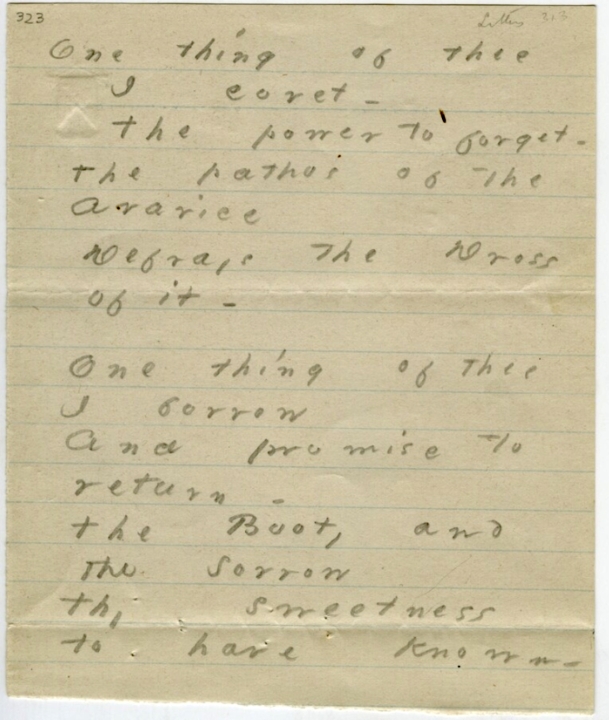 323
One thing of thee
I covet -
the power to forget -
the pathos of the
Avarice
Defrays the Dross
of it -
One thing of Thee
I borrow
And promise to
return -
the Booty and
the Sorrow
thy sweetness
to have known -